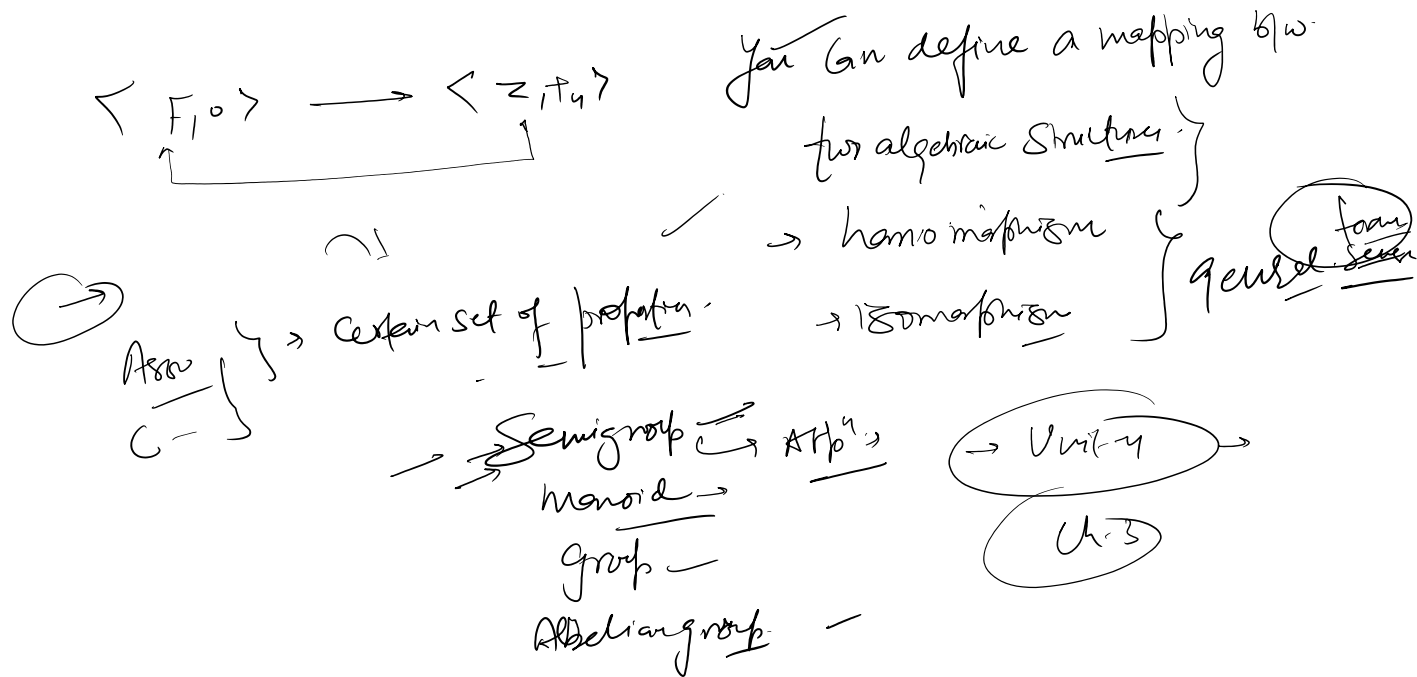 You can define a mapping b/w
< F, o > → < Z, +₄ >
two algebraic structures.
→ homomorphism
→ isomorphism
general form
Asso
C -
→ certain set of properties.
→ Semigroup → Appⁿ →
Monoid →
group -
Abelian group. -
→ Unit-4 →
Ch-3